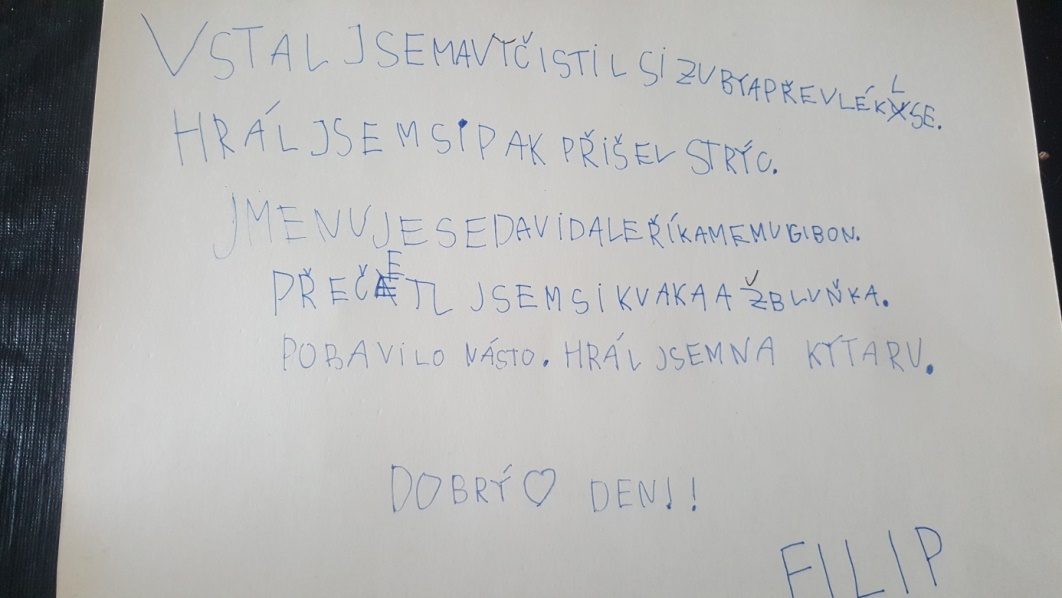 VSTAL JSEMAVYČISTIL SI ZUBYAPŘEVLÉKLSE.
HRÁL JSEM SI PAK PŘIŠEL STRÝC.
JMENUJESEDAVIDALEŘÍKAMEMUGIBON.
PŘEČETL JSEMSI KVAKA A ŽBLUŇKA.
POBAVILO NÁSTO. HRÁL JSEMNA KYTARU.
DOBRÝ♡ DEN!!
FILIP